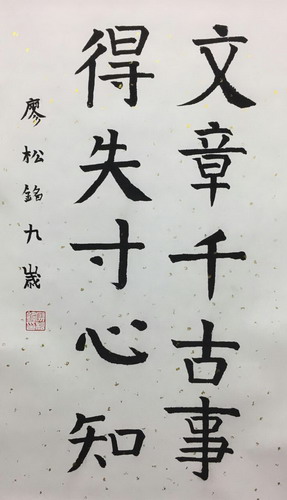 文章千古事
得失寸心知
廖松銘九歲